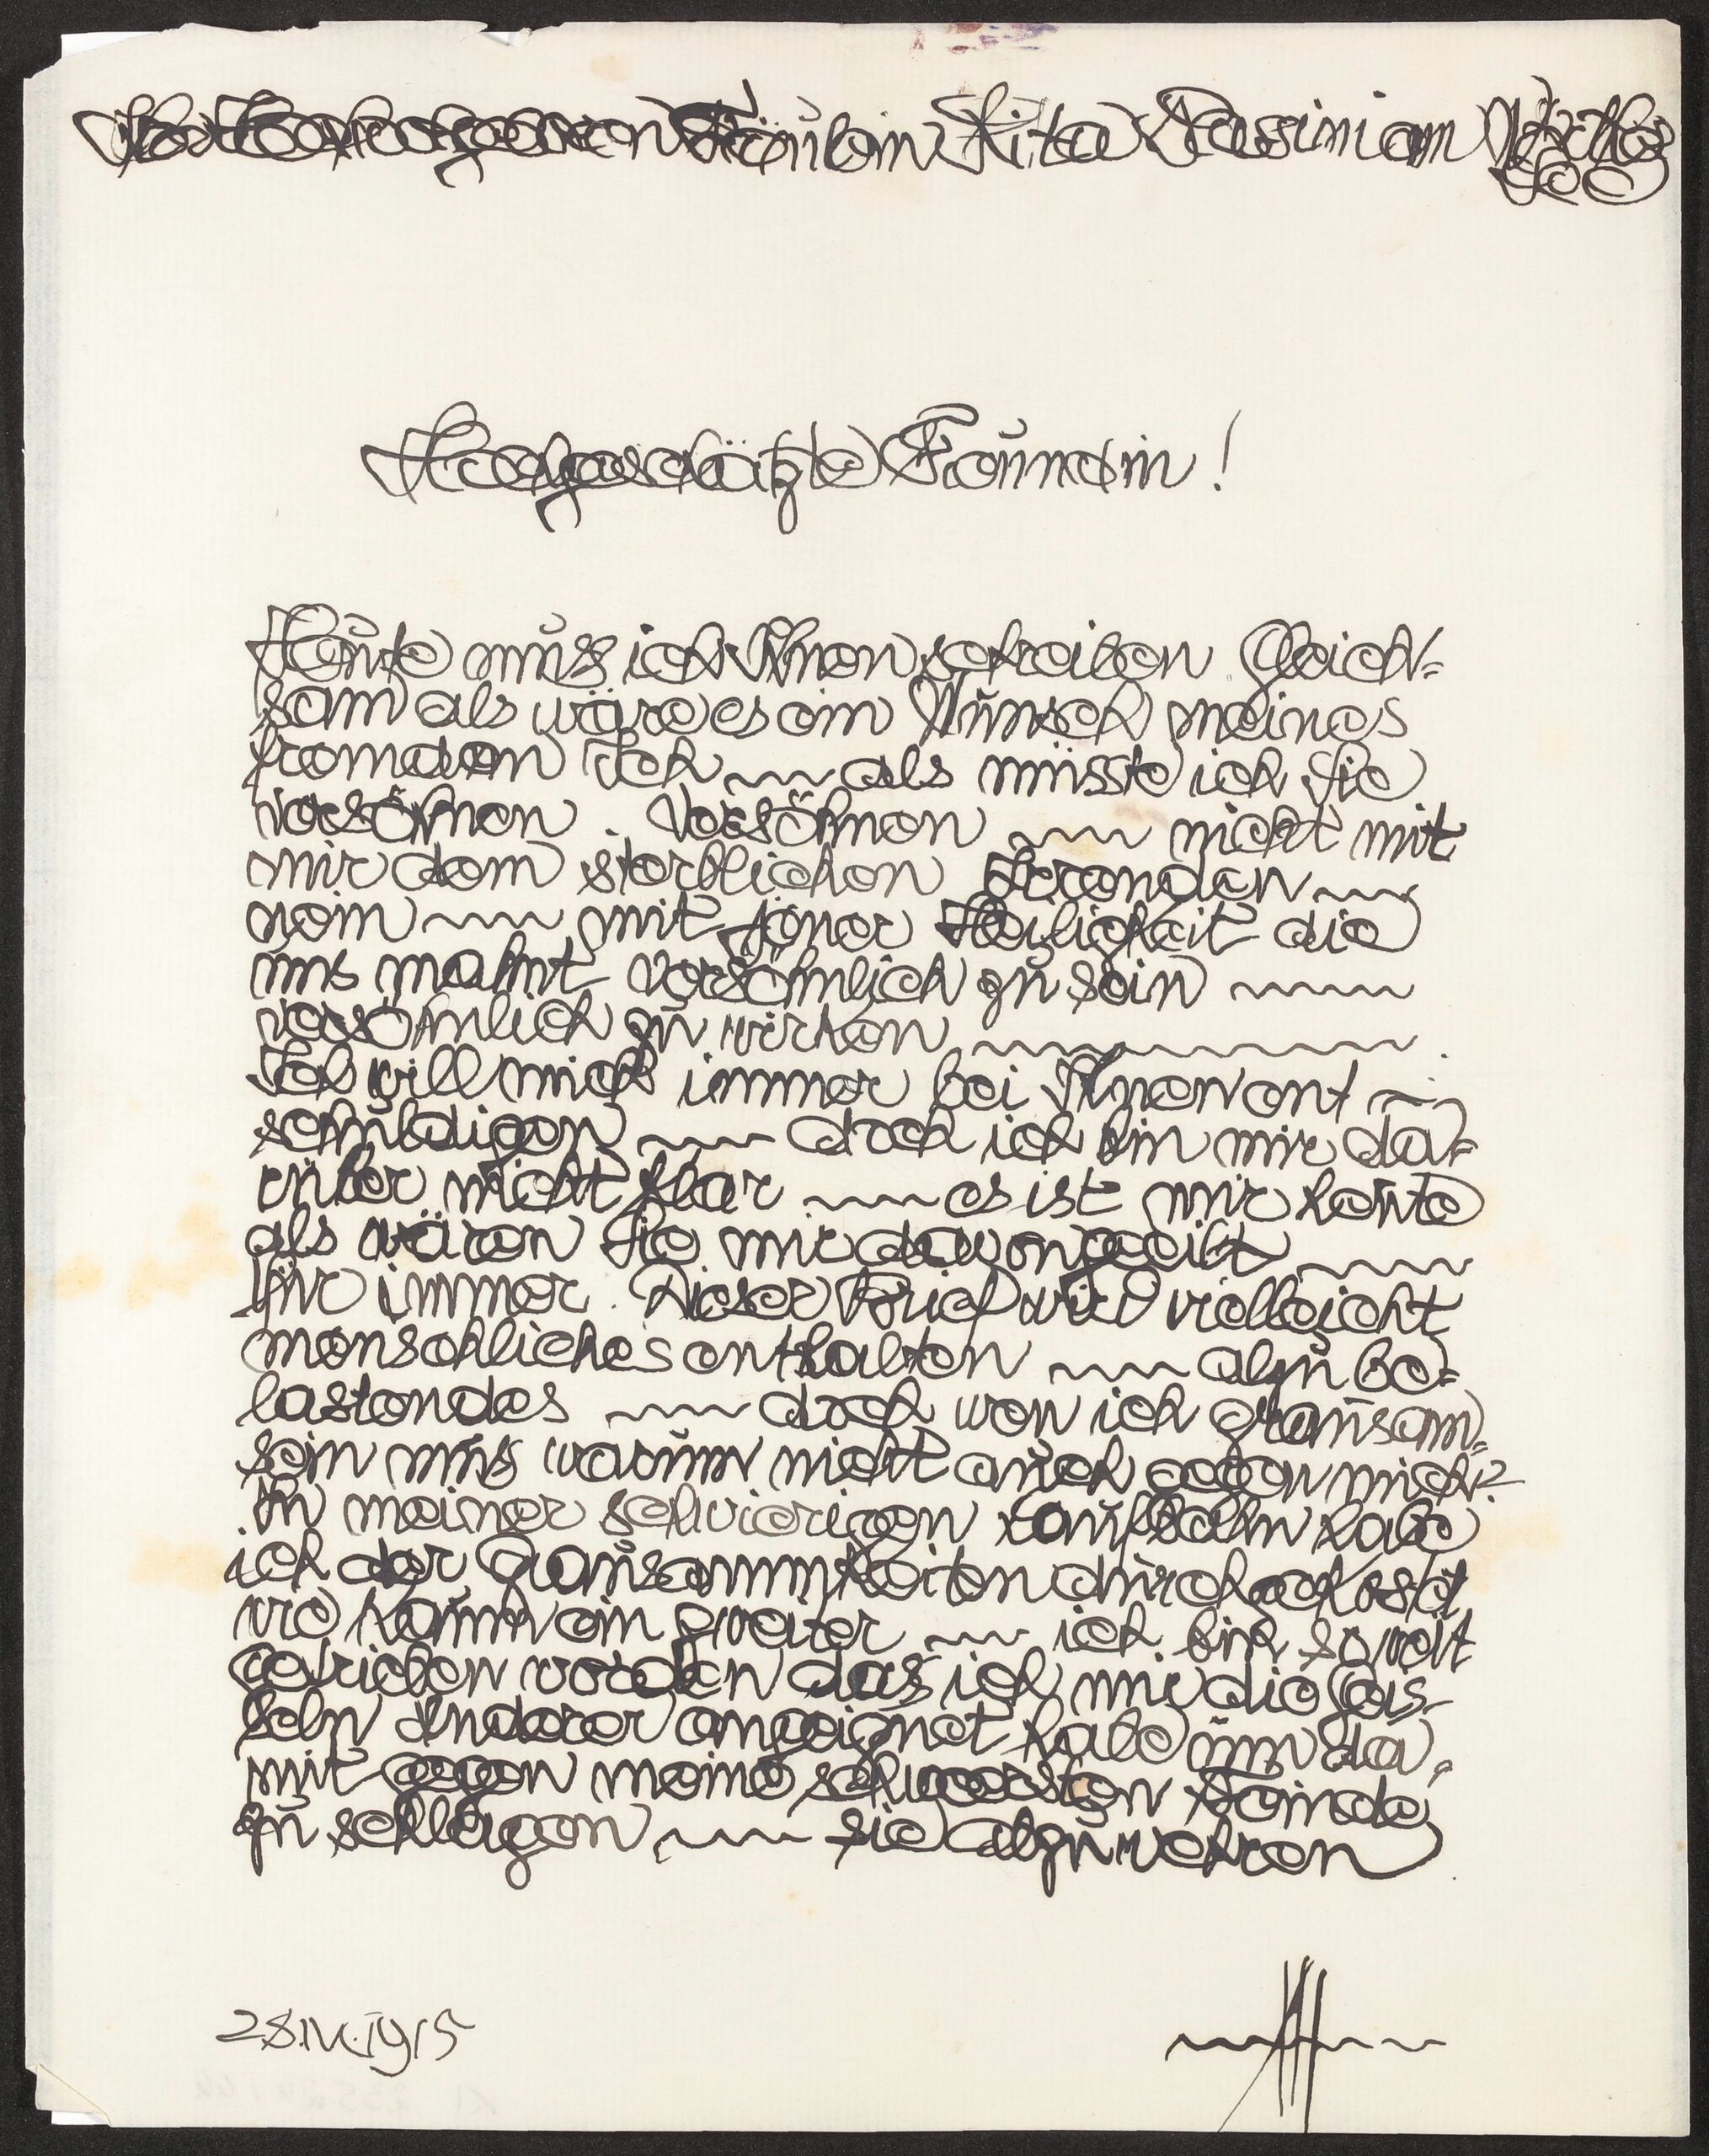 Hochwohlgeboren Fräulein Rita Passini am
Hochgeschätzte Freundin!
Heute muss ich Ihnen schreiben Gleich=
sam als wäre es ein Wunsch meines
fremden Ich ~ als müsste ich Sie
versöhnen. Versöhnen ~ nicht mit
mir dem sterblichen Fremden ~
nein ~ mit jener Heiligkeit die
uns mahnt versöhnlich zu sein ~
versöhnlich zu wirken ~.
Ich will mich immer bei Ihnen ent ~
schuldigen ~ doch ich bin mir da=
rüber nicht klar ~ es ist mir heute
als wären Sie mir davongeeilt ~
für immer. Dieser Brief wird vielleicht
menschliches enthalten ~ alzu be=
lastendes ~ doch wen ich grausam
sein mus warum nicht auch gegen mich?
In meiner schwierigen Laufbahn habe
ich der Grausammkeiten durchgekostet
wie kaum ein zweiter ~ ich bin so weit
getrieben worden das ich mir die Geis=
seln Anderer angeeignet habe um da=
mit gegen meine schwersten Feinde
zu schlagen ~ sie abzuwehren
28.IV.1915